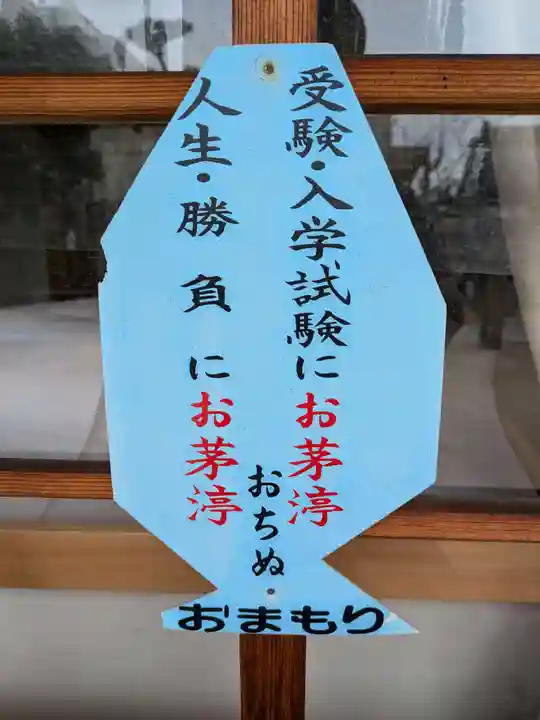 受験・入学試験にお茅渟
人生・勝負にお茅渟
おちぬ
おまもり